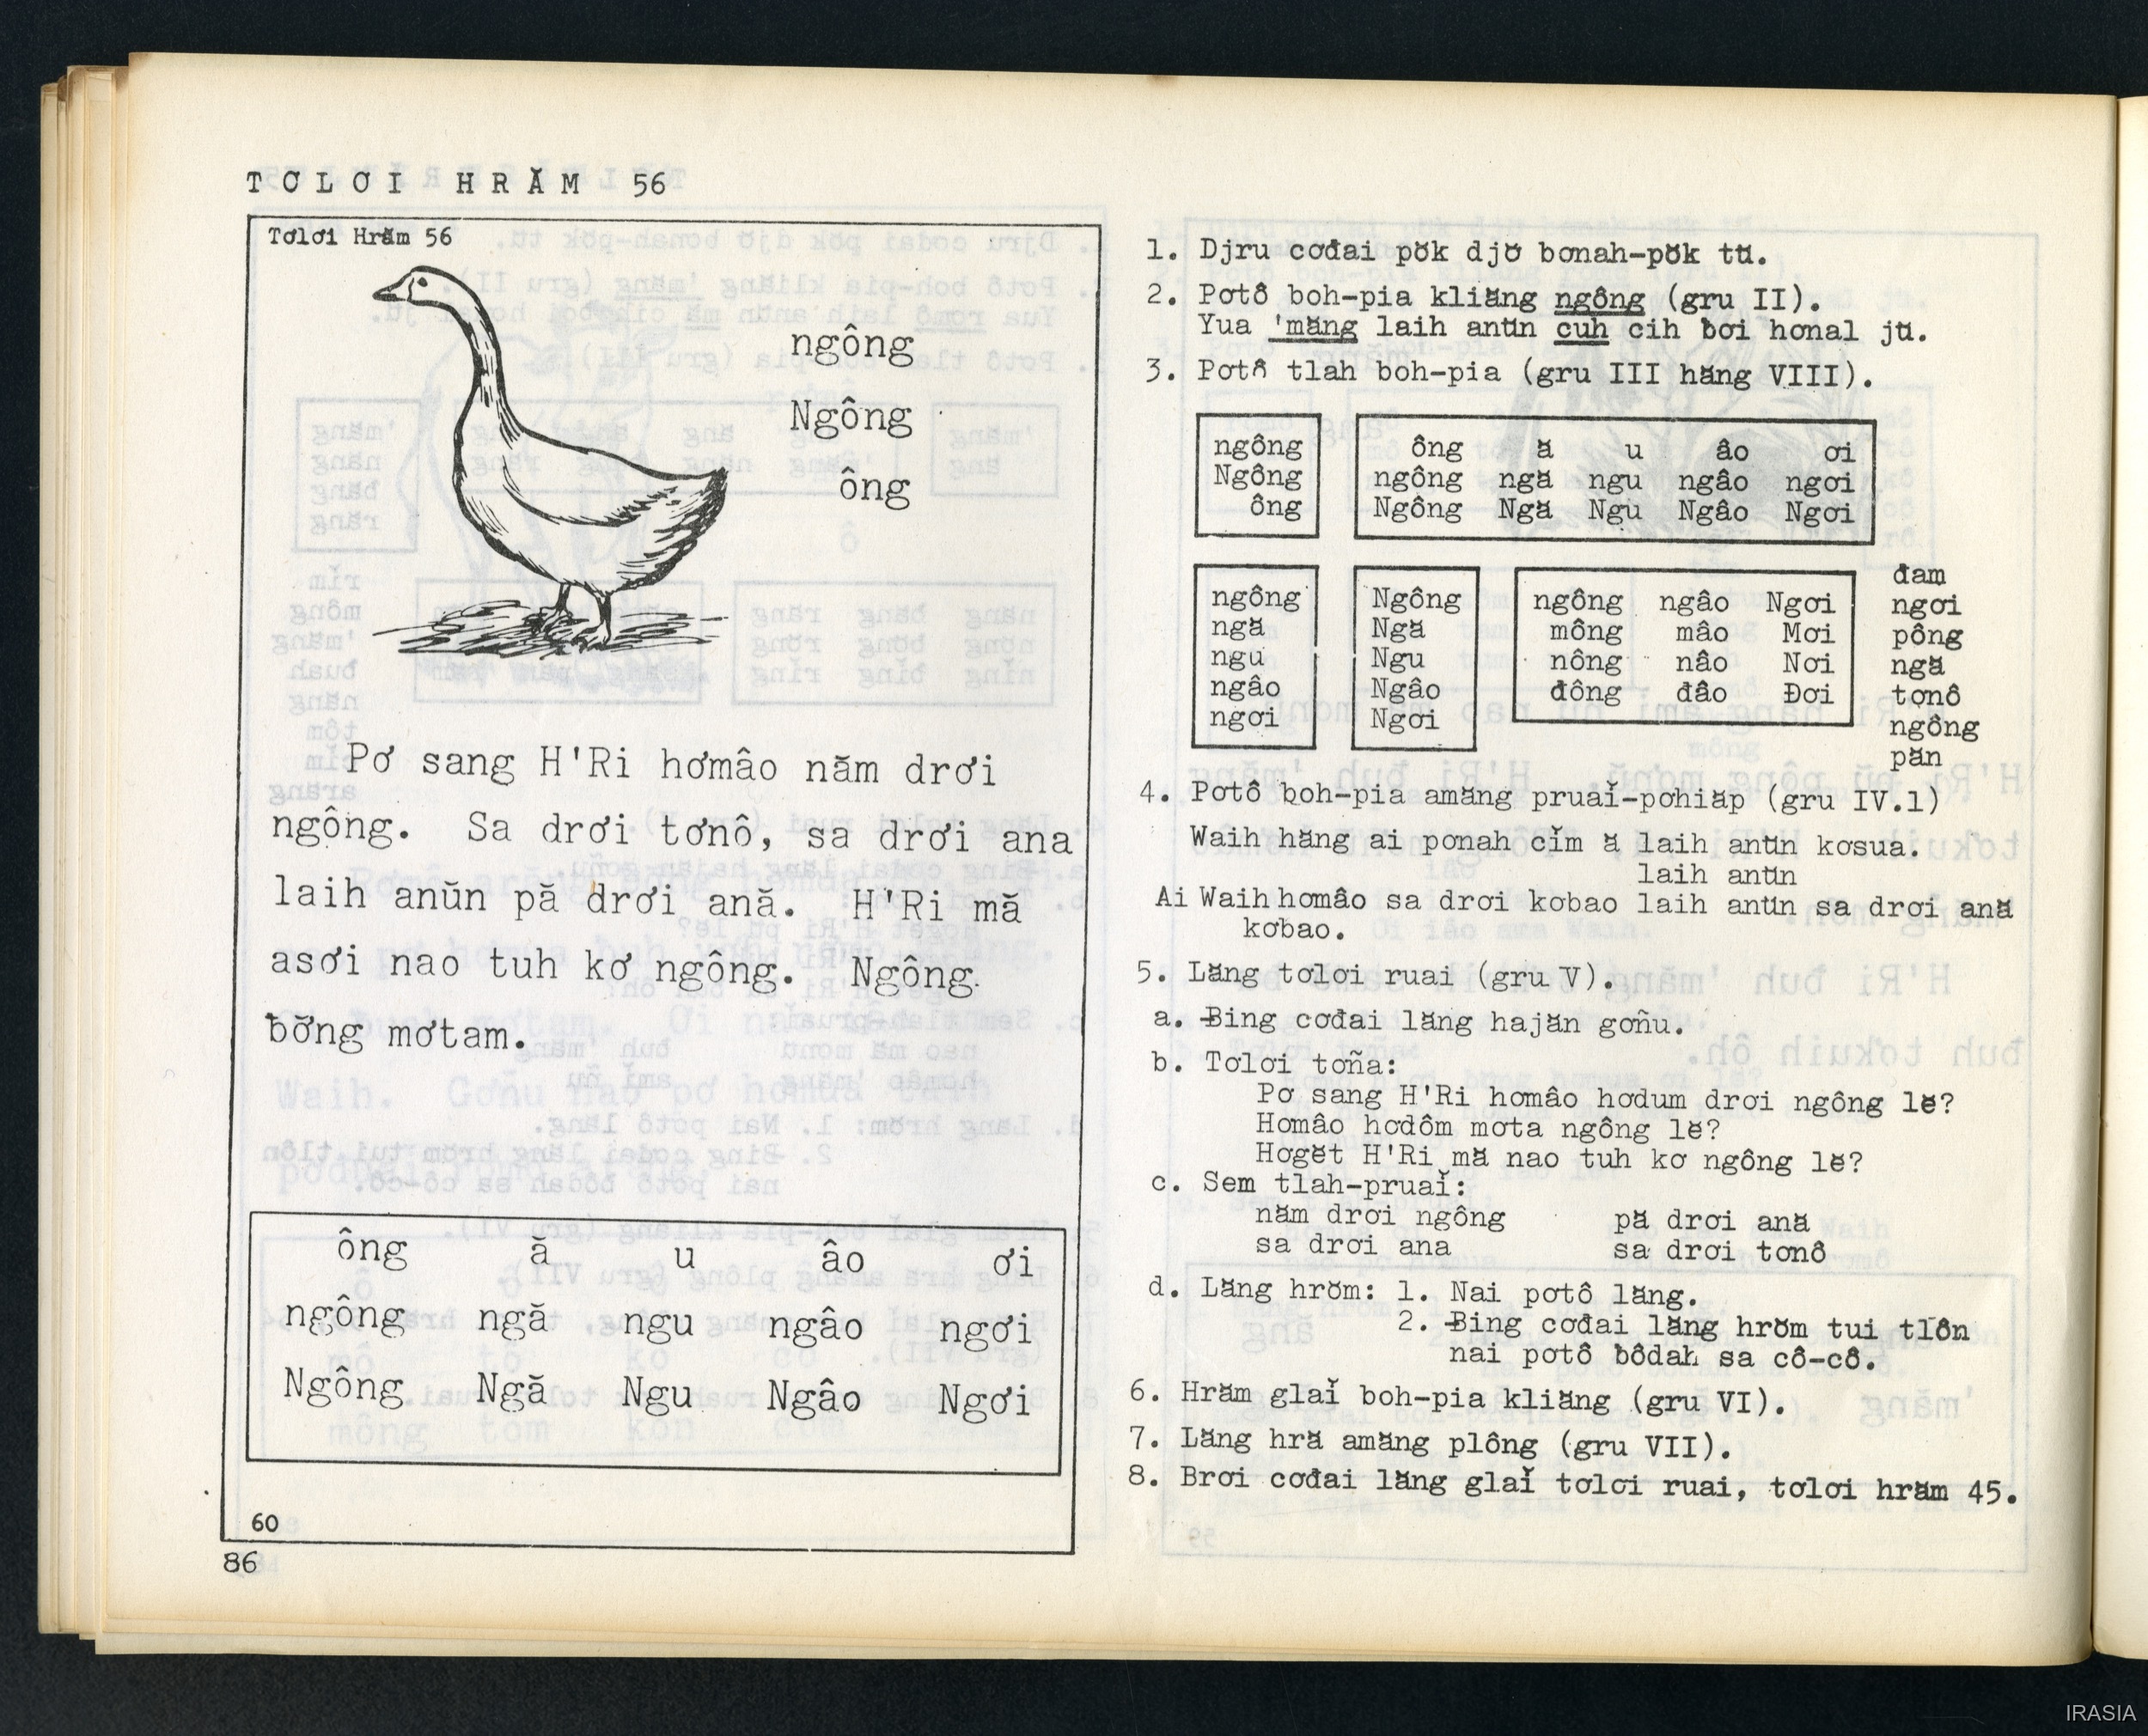 TƠLƠI HRĂM 56
Tơlơi Hrăm 56
ngông
Ngông
ông
Pơ sang H'Ri hơmâo năm drơi
ngông. Sa drơi tơnô, sa drơi ana
laih anŭn pă drơi ană. H'Ri mă
asơi nao tuh kơ ngông. Ngông
ƀơ̆ng mơtam.
ông ă u âo ơi
ngông ngă ngu ngâo ngơi
Ngông Ngă Ngu Ngâo Ngơi
60
86
1. Djru cơđai pŏk djơ̆ bơnah-pŏk tŭ.
2. Pơtô boh-pia kliăng ngông (gru II).
Yua 'măng laih anŭn cuh cih ƀơi hơnal jŭ.
3. Pơtô tlah boh-pia (gru III hăng VIII).
ngông
Ngông
ông
ông ă u âo ơi
ngông ngă ngu ngâo ngơi
Ngông Ngă Ngu Ngâo Ngơi
ngông
ngă
ngu
ngâo
ngơi
Ngông
Ngă
Ngu
Ngâo
Ngơi
ngông ngâo Ngơi
mông mâo Mơi
nông nâo Nơi
đông đâo Đơi
đam
ngơi
pông
ngă
tơnô
ngông
păn
4. Pơtô boh-pia amăng pruaĭ-pơhiăp (gru IV.1)
Waih hăng ai pơnah cĭm ă laih anŭn kơsua.
laih anŭn
Ai Waih hơmâo sa drơi kơbao laih anŭn sa drơi ană
kơbao.
5. Lăng tơlơi ruai (gru V).
a. Ƀing cơđai lăng hajăn gơñu.
b. Tơlơi tơña:
Pơ sang H'Ri hơmâo hơdum drơi ngông lĕ?
Hơmâo hơdôm mơta ngông lĕ?
Hơgĕt H'Ri mă nao tuh kơ ngông lĕ?
c. Sem tlah-pruaĭ:
năm drơi ngông pă drơi ană
sa drơi ana sa drơi tơnô
d. Lăng hrŏm: 1. Nai pơtô lăng.
2. Ƀing cơđai lăng hrŏm tui tlôn
nai pơtô ƀôdah sa cô-cô.
6. Hrăm glaĭ boh-pia kliăng (gru VI).
7. Lăng hră amăng plông (gru VII).
8. Brơi cơđai lăng glaĭ tơlơi ruai, tơlơi hrăm 45.
IRASIA